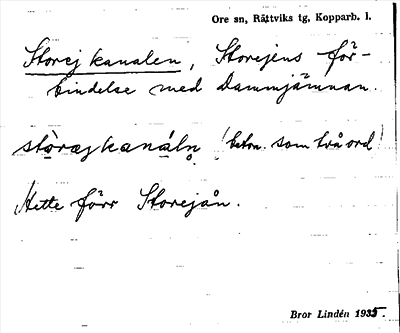 Ore sn, Rättviks tg, Kopparb. l.
Storejkanalen, Storejens för-
bindelse med Dammjämnan.
stòraykanáln (beton. som två ord)
Hette förr Storejån.
Bror Lindén 1935.